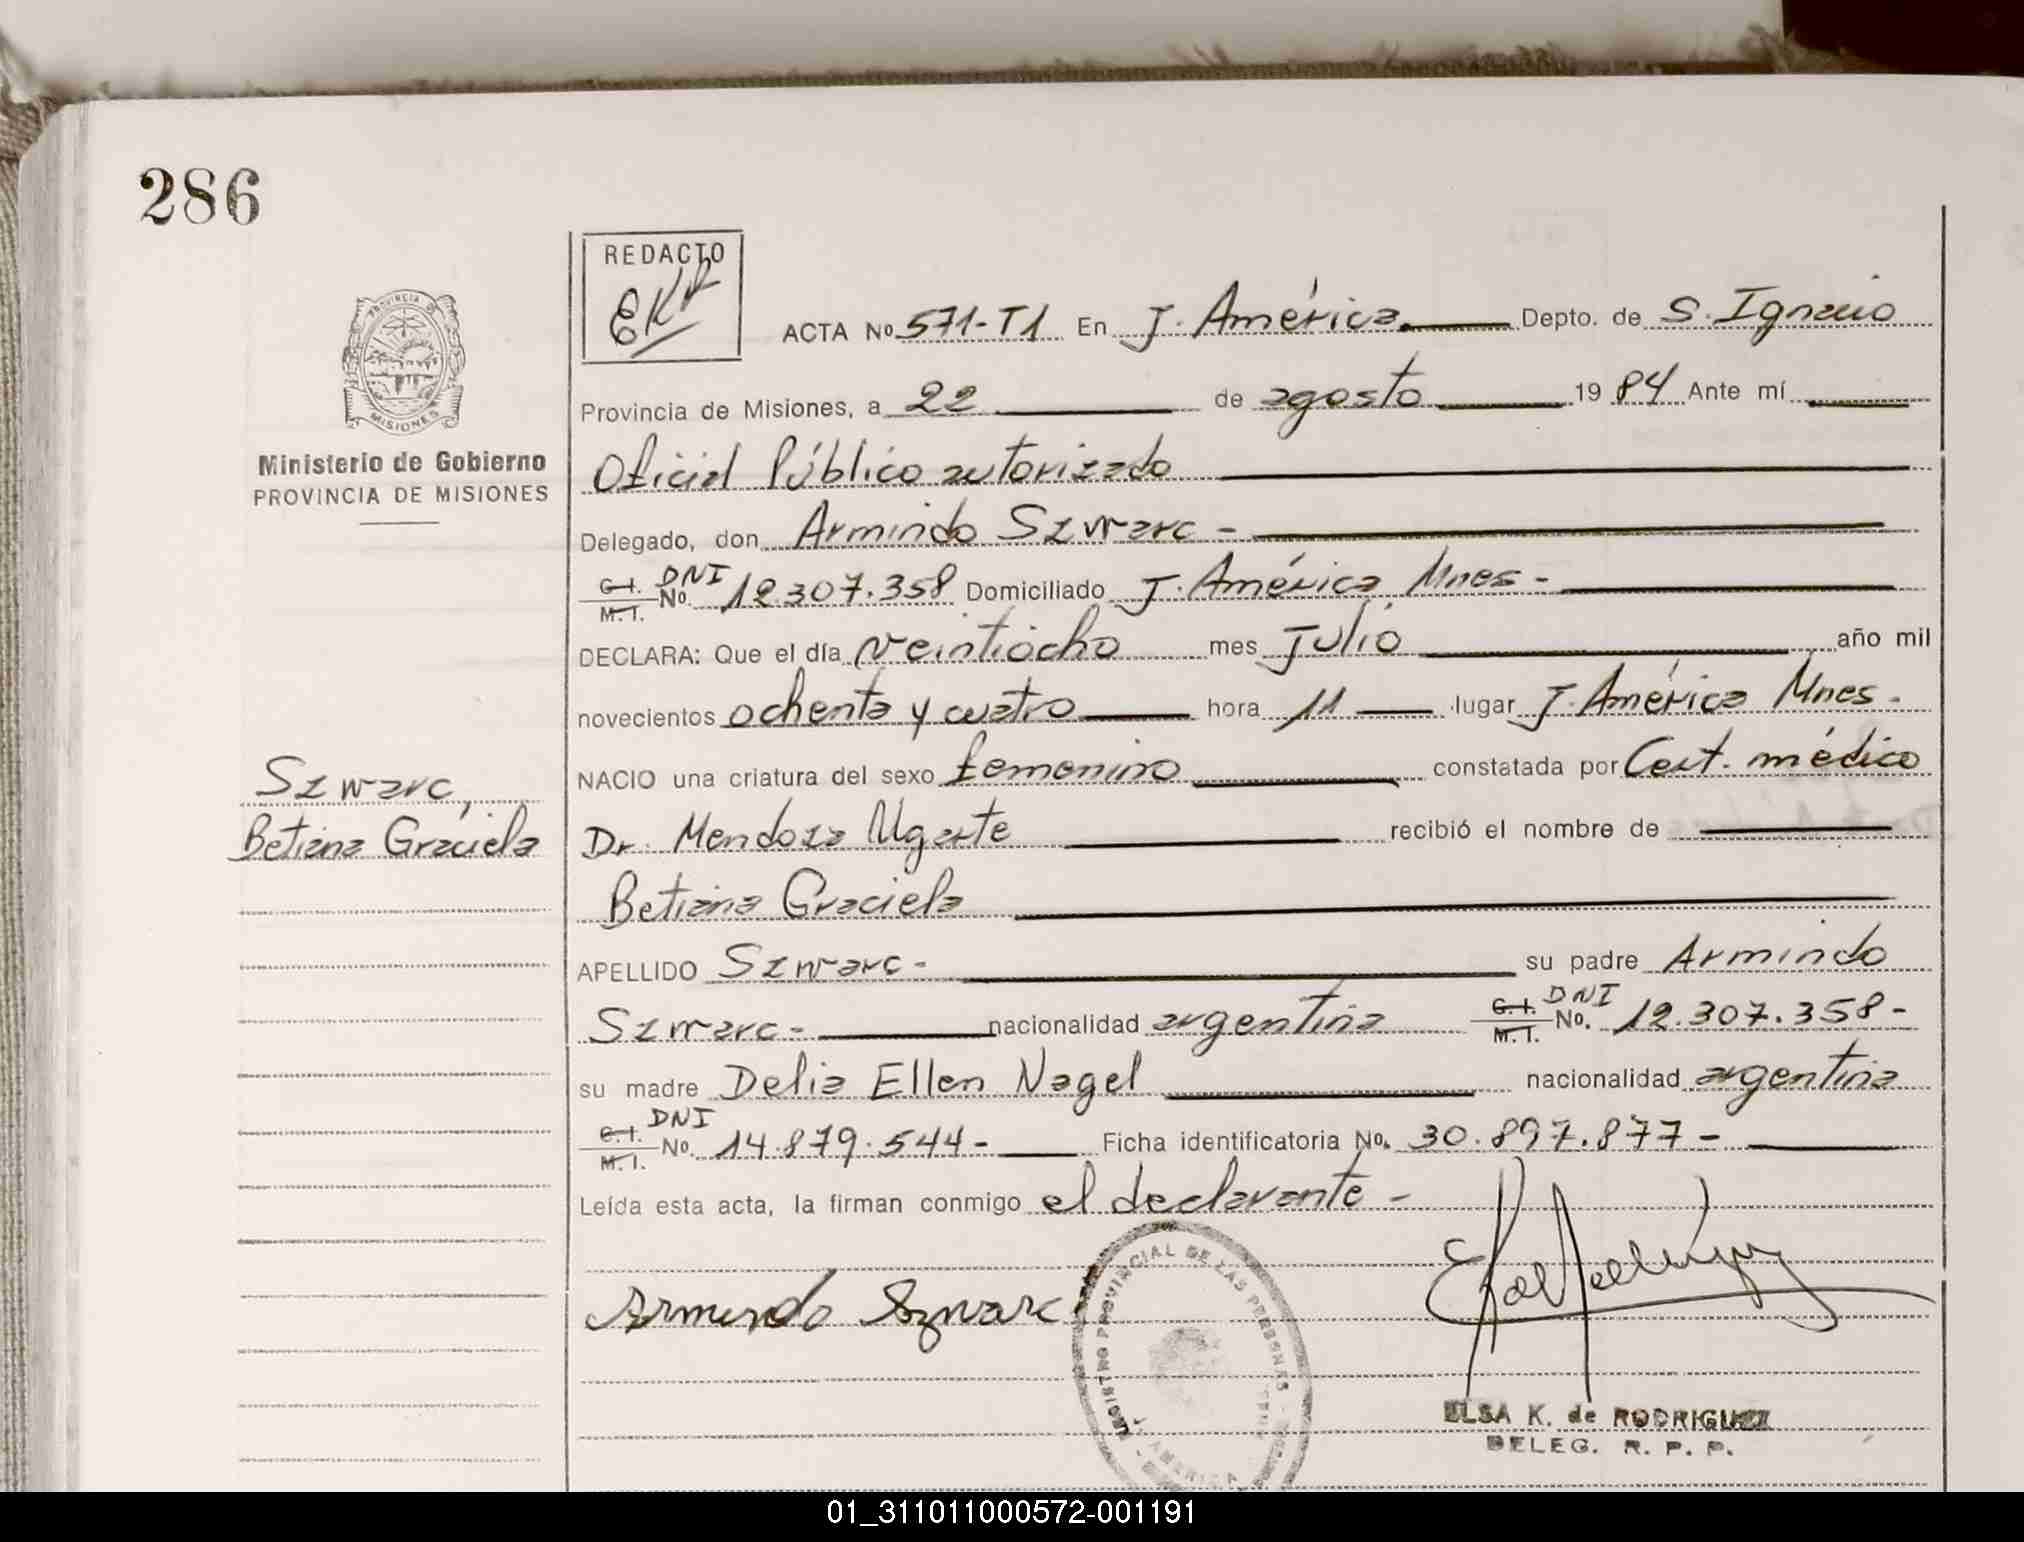 286
REDACTO
EKR
PROVINCIA DE
MISIONES
ACTA No 571-T1 En J. América. Depto. de S. Ignacio
Provincia de Misiones, a 22 de agosto 1984 Ante mí
Ministerio de Gobierno
PROVINCIA DE MISIONES
Oficial Público autorizado
Delegado, don Armindo Szwarc -
C.I. M.I. DNI No. 12.307.358 Domiciliado J. América Mnes -
DECLARA: Que el día veintiocho mes Julio año mil
novecientos ochenta y cuatro hora 11 lugar J. América Mnes.
NACIO una criatura del sexo femenino constatada por Cert. médico
Szwarc,
Betiana Graciela
Dr. Mendoza Ugarte recibió el nombre de
Betiana Graciela
APELLIDO Szwarc- su padre Armindo
Szwarc- nacionalidad argentina C.I. M.I. DNI No. 12.307.358-
su madre Delia Ellen Nagel nacionalidad argentina
C.I. M.I. DNI No. 14.879.544- Ficha identificatoria No. 30.897.877-
Leída esta acta, la firman conmigo el declarante -
Armindo Szwarc
REGISTRO PROVINCIAL DE LAS PERSONAS
AMERICA
ELSA K. de RODRIGUEZ
DELEG. R. P. P.
01_311011000572-001191